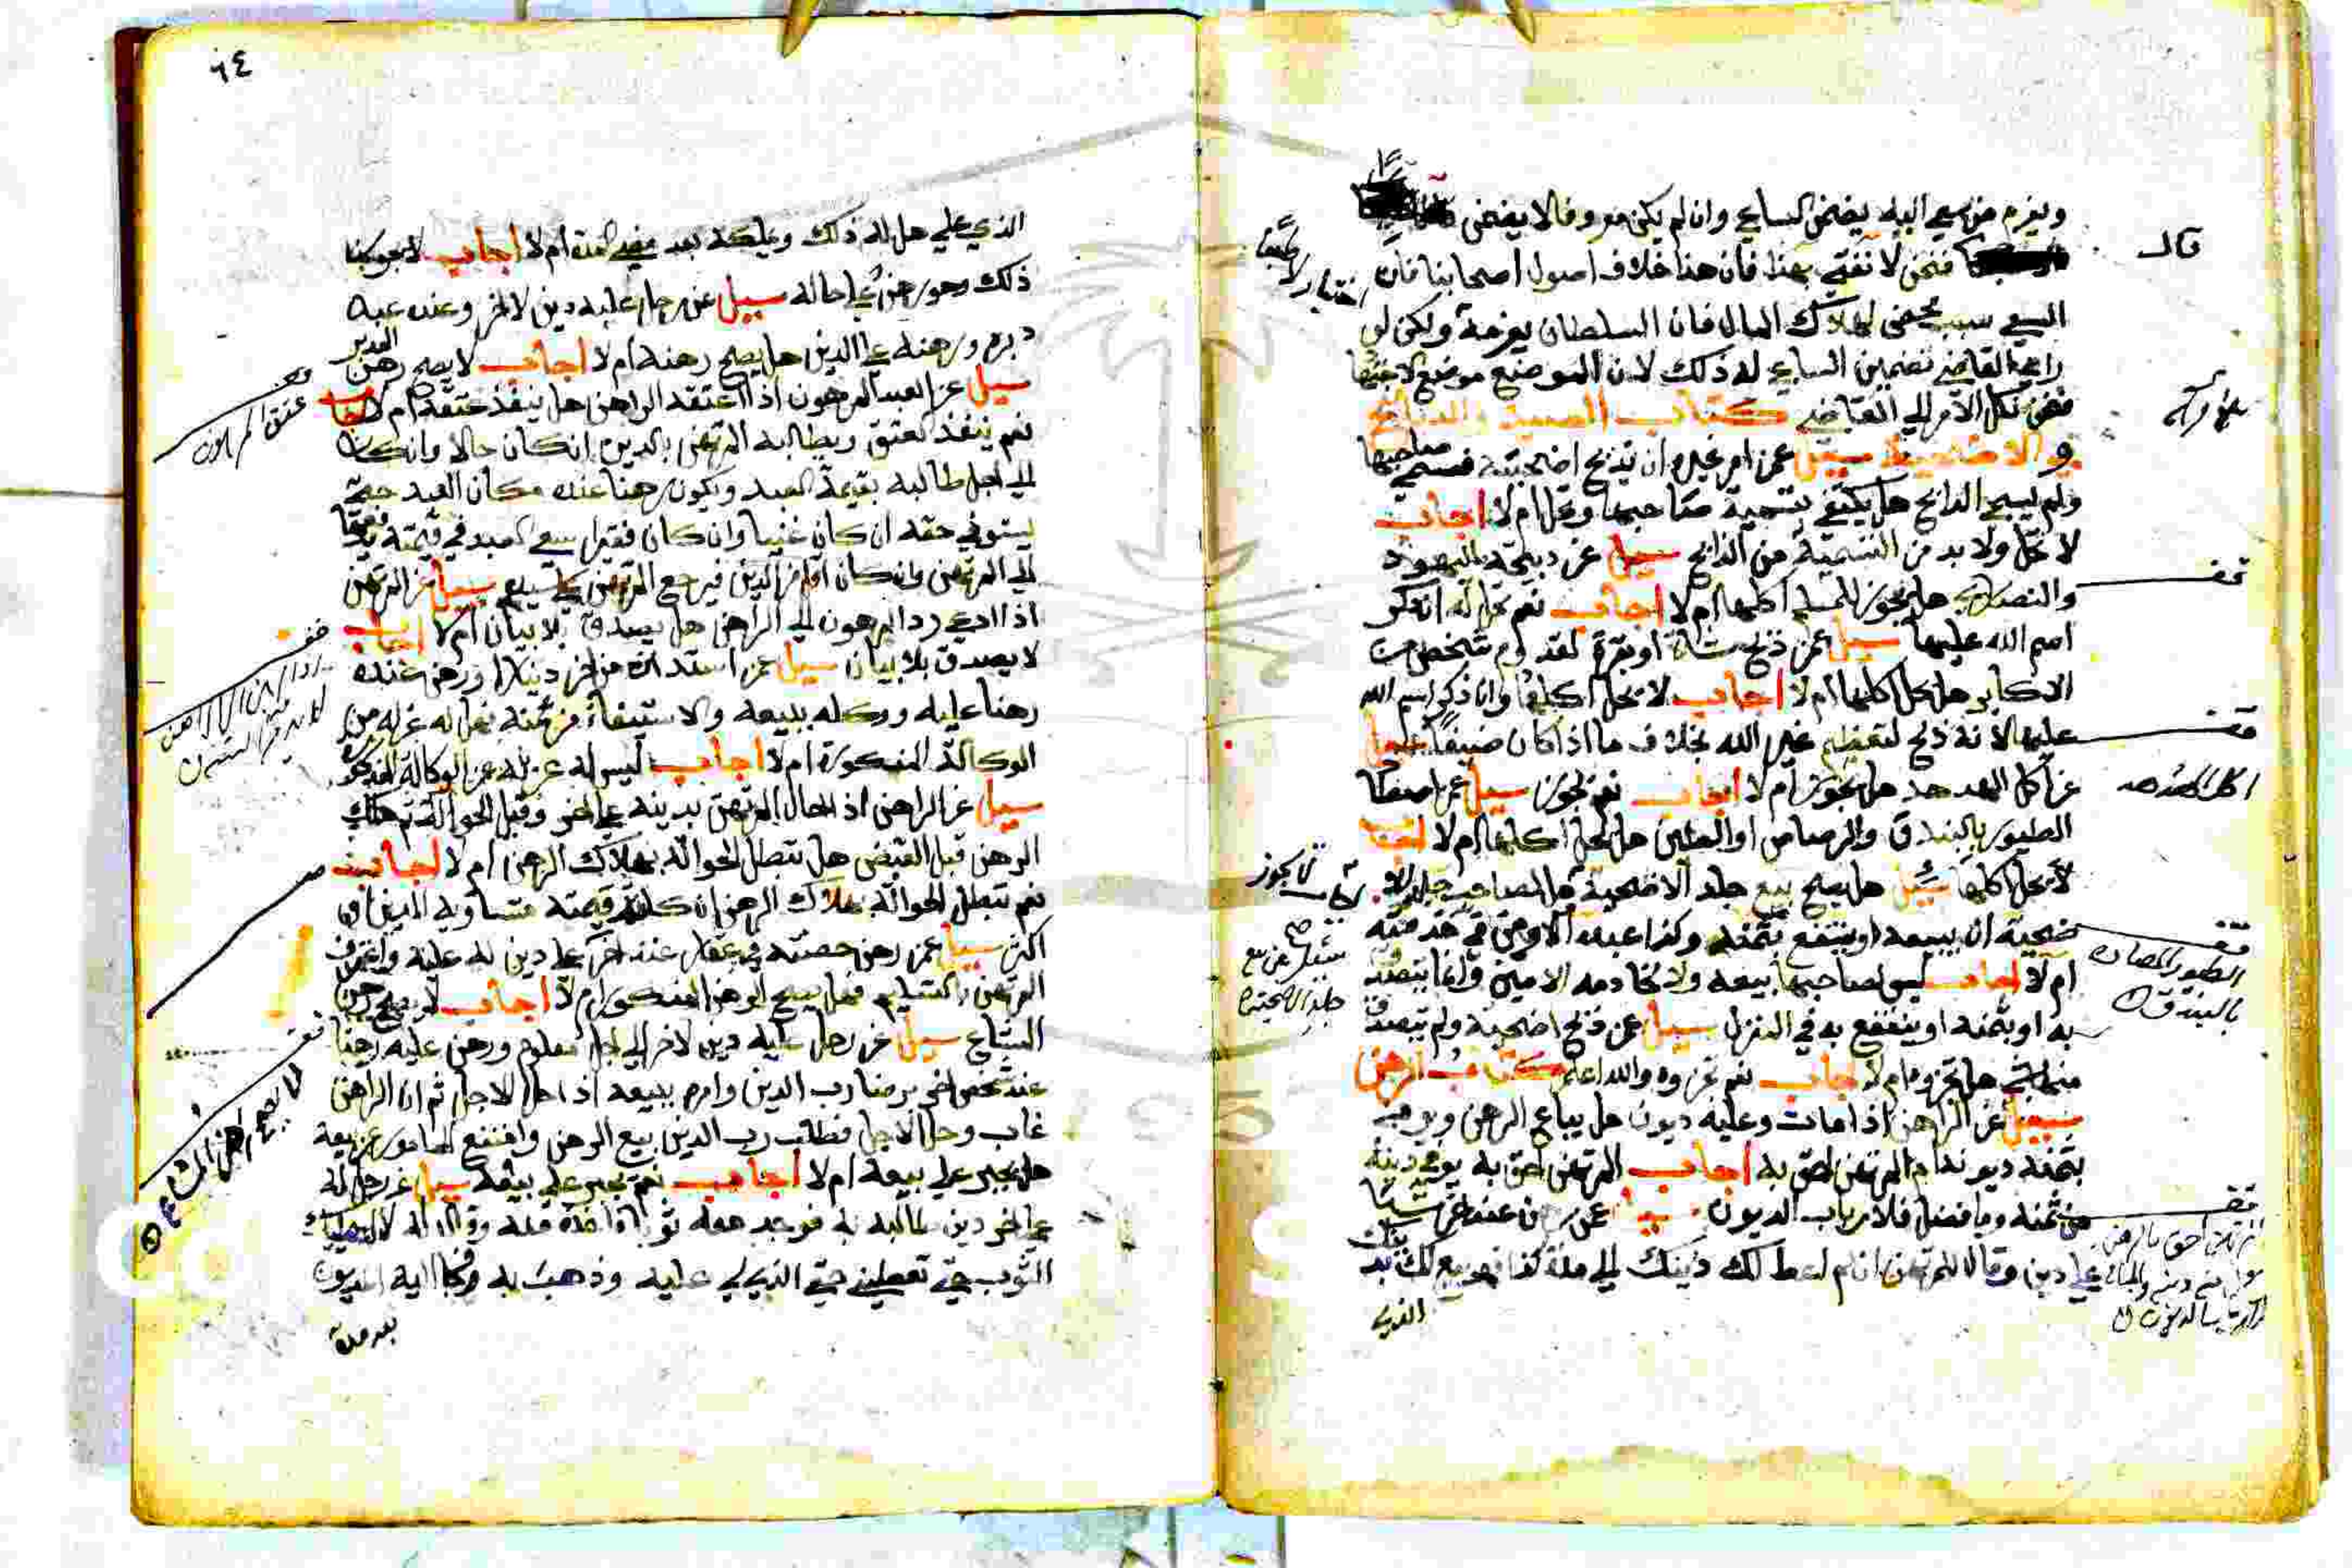 ويغرم من سعى اليه يضمن الساعي وان لم يكن معروفا لا يضمن
قال
فنحن لا نفتي بهذا فان هذا خلاف اصول اصحابنا فان
السعي سبب محض لهلاك المال فان السلطان يغرمه ولكن لو
راى القاضي تضمين الساعي له ذلك لان الموضع موضع الاجتهاد
فنحن نكل الامر الى القاضي كتاب الصيد والذبائح
والاضحية سيل عمن امر غيره ان يذبح اضحيته فسمى صاحبها
ولم يسم الذابح هل يكتفى بتسمية صاحبها وتحل ام لا اجاب
لا تحل ولا بد من التسمية من الذابح سيل عن ذبيحة اليهود
والنصارى هل يجوز للمسلم اكلها ام لا اجاب نعم تحل له ان ذكر
اسم الله عليها سيل عمن ذبح شاة او بقرة لقدوم شخص من
الاكابر هل يحل اكلها ام لا اجاب لا يحل اكلها وان ذكر اسم الله
عليها لانه ذبح لتعظيم غير الله بخلاف ما اذا كان ضيفا سيل
عن اكل الهدهد هل يجوز ام لا اجاب نعم يجوز سيل عمن اصطاد
اكل الهدهد
الطيور بالبندق والرصاص او الطين هل يحل اكلها ام لا اجاب
لا يحل اكلها سيل هل يصح بيع جلد الاضحية هل لصاحب
ضحية ان يبيعه او ينتفع بثمنه وكذا عبده الا وهي في خدمته
الطيور المصاده
بالبندق
ام لا اجاب ليس لصاحبها بيعه ولا لخادمه الامين وانما يتصدق
به او بثمنه او ينتفع به في المنزل سيل عمن ذبح اضحية ولم يتصدق
منها بشي هل تجزوه ام لا اجاب نعم تجزوه والله اعلم كتاب الرهن
سيل عن الراهن اذا مات وعليه ديون هل يباع الرهن ويوفى
بثمنه ديونه ام المرتهن احق به اجاب المرتهن احق به يوفى دينه
من ثمنه وما فضل فلارباب الديون سيل عن رهن عند اخر شيا
على دين وقال للمرتهن ان لم اعط لك دينك الى مدة كذا فهو بيع لك بدينك
الذي
٦٤
الذي علي هل له ذلك ويملكه بعد مضي المدة ام لا اجاب لا يجوز
ذلك وهو رهن على حاله سيل عن رجل عليه دين لاخر وعنده عبد
دبره ورهنه على الدين هل يصح رهنه ام لا اجاب لا يصح رهن المدبر
سيل عن العبد المرهون اذا اعتقه الراهن هل ينفذ عتقه ام لا اجاب
عتق المرهون
نعم ينفذ العتق ويطالبه المرتهن بالدين ان كان حالا وان كان
الى اجل طالبه بقيمة العبد ويكون رهنا عنده مكان العبد حتى
يستوفي حقه ان كان غنيا وان كان فقيرا سعى العبد في قيمته يدفعها
الى المرتهن وان كان اقل من الدين فيرجع المرتهن على سيده سيل عن المرتهن
اذا ادعى رد المرهون الى الراهن هل يصدق بلا بيان ام لا اجاب
لا يصدق بلا بيان سيل عمن استدان من اخر دينارا ورهن عنده
رهنا عليه ووكله ببيعه والاستيفاء من ثمنه فهل له عزله من
الوكالة المذكورة ام لا اجاب ليس له عزله عن الوكالة المذكورة
سيل عن الراهن اذا احال المرتهن بدينه على اخر وقبل الحوالة ثم هلك
الرهن قبل القبض هل تبطل الحوالة بهلاك الرهن ام لا اجاب
نعم تبطل الحوالة بهلاك الرهن ان كانت قيمته متساوية للدين او
اكثر سيل عمن رهن حصته في عقار عند اخر على دين له عليه واعترف
المرتهن بالتسليم فهل يصح الرهن المذكور ام لا اجاب لا يصح رهن
المشاع سيل عن رجل عليه دين لاخر الى اجل معلوم ورهن عليه رهنا
عند شخص اخر برضا رب الدين وامره ببيعه اذا حل الاجل ثم ان الراهن
لا يصح رهن المشاع
غاب وحل الاجل فطلب رب الدين بيع الرهن وامتنع المامور عن بيعه
هل يجبر على بيعه ام لا اجاب نعم يجبر على بيعه سيل عن رجل له
على اخر دين طالبه به فوجد معه ثوبا واخذه منه وقال له لا اعطيك
الثوب حتى تعطيني حقي الذي لي عليه وذهب به وجا اليه المديون
بعد مدة